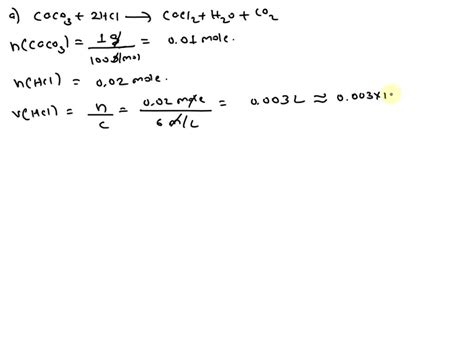 a) CaCO3 + 2HCl → CaCl2 + H2O + CO2
n(CaCO3) = 1g / 100g/mol = 0.01 mole.
n(HCl) = 0.02 mole.
V(HCl) = n/c = 0.02 mole / 6 m/L = 0.003 L ≈ 0.003×1